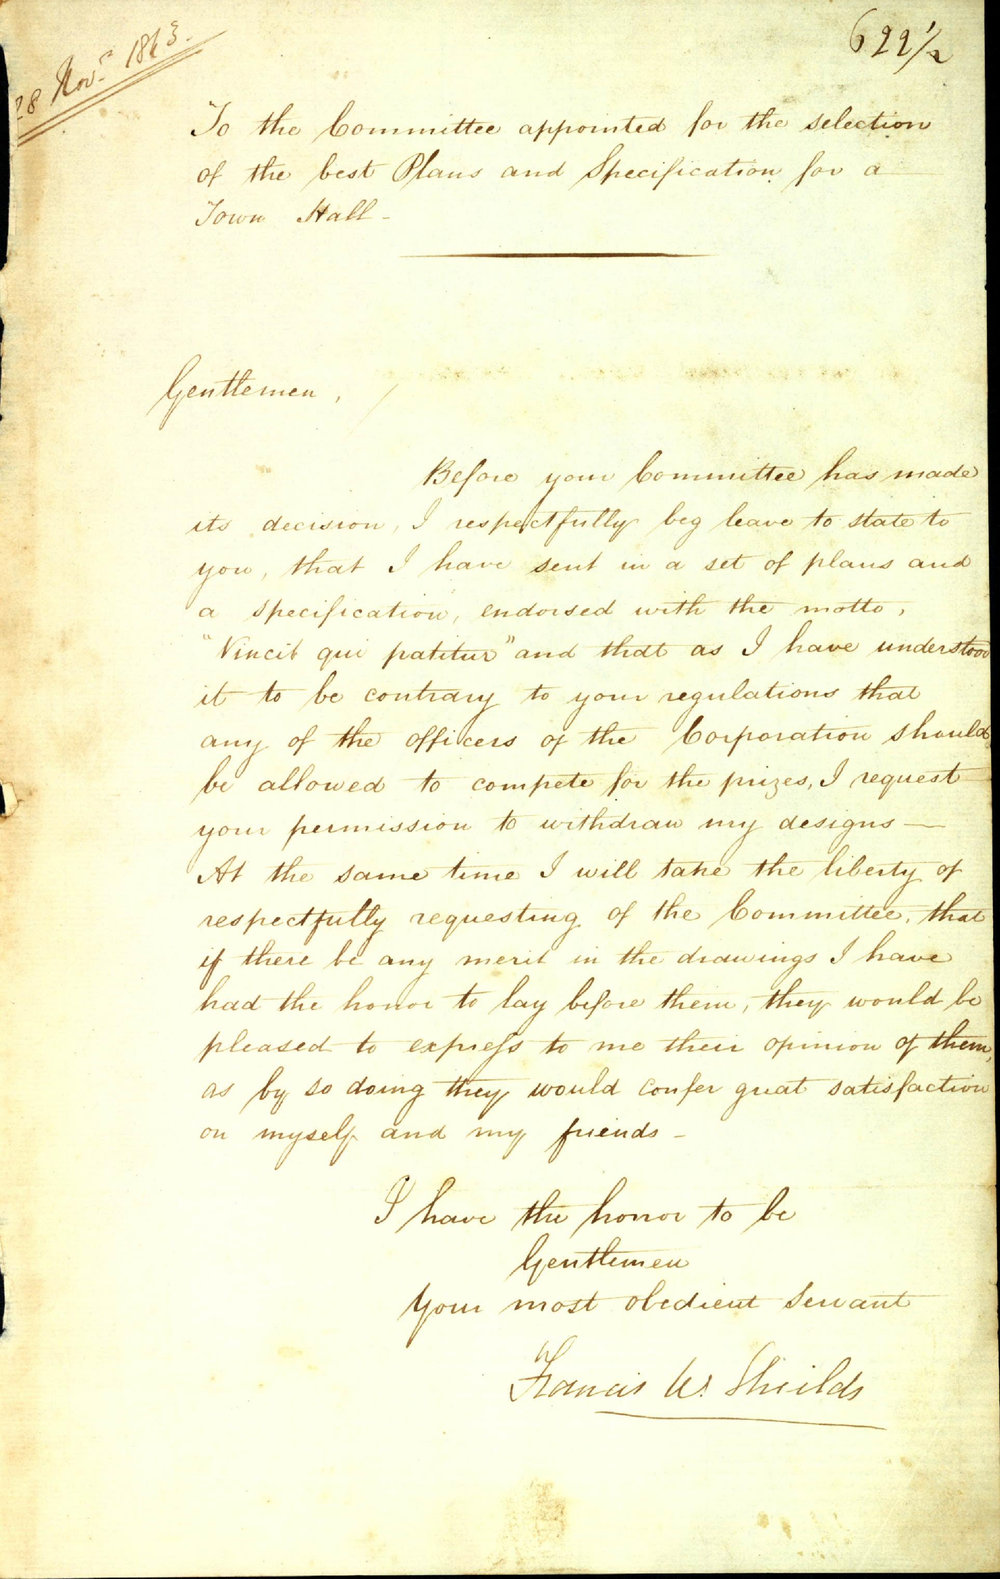 28 Novr. 1843.
622 1/2
To the Committee appointed for the selection
of the best Plans and Specification for a
Town Hall -
Gentlemen,
Before your Committee has made
its decision, I respectfully beg leave to state to
you, that I have sent in a set of plans and
a specification, endorsed with the motto,
"Vincit qui patitur" and that as I have understood
it to be contrary to your regulations that
any of the officers of the Corporation should
be allowed to compete for the prizes, I request
your permission to withdraw my designs —
At the same time I will take the liberty of
respectfully requesting of the Committee, that
if there be any merit in the drawings I have
had the honor to lay before them, they would be
pleased to express to me their opinion of them,
as by so doing they would confer great satisfaction
on myself and my friends -
I have the honor to be
Gentlemen
Your most obedient servant
Francis W. Sheilds